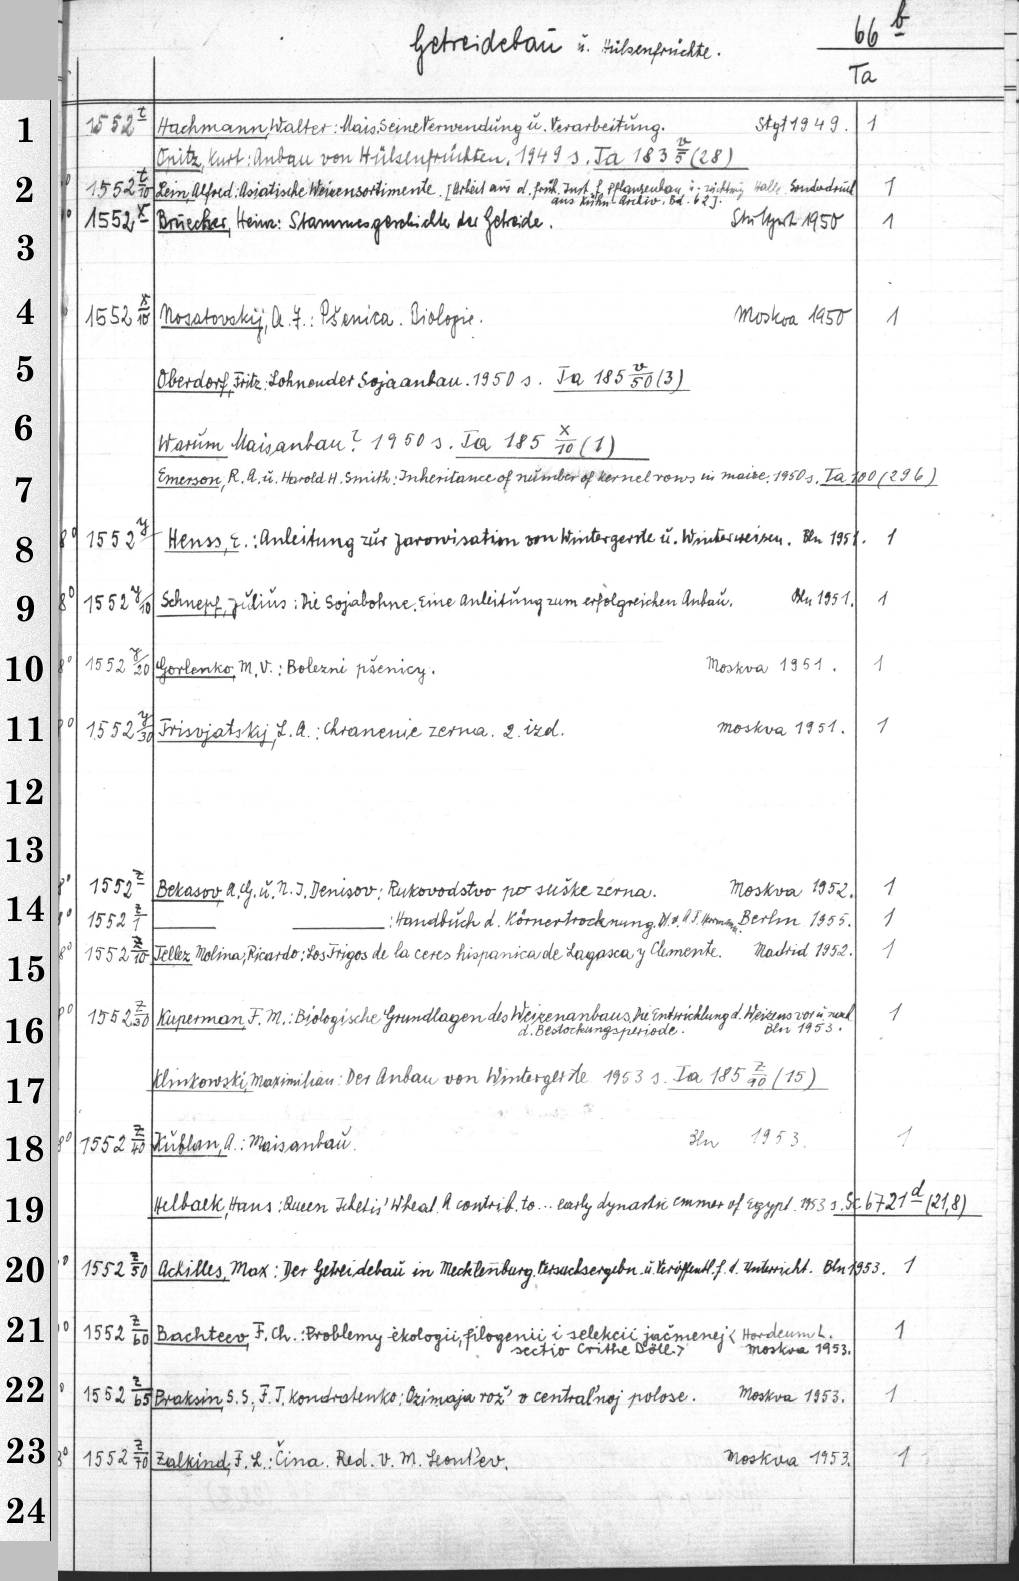 Getreidebau u. Hülsenfrüchte.
66 b
Ta
1 1552 t Hachmann, Walter: Mais. Seine Verwendung u. Verarbeitung. Stgt 1949. 1
Opitz, Kurt: Anbau von Hülsenfrüchten. 1949 s. Ta 183 v/5 (28)
2 1552 t/10 Lein, Alfred: Asiatische Weizensortimente. [Arbeit aus d. früh. Inst. f. Pflanzenbau u. -züchtung Halle. Sonderdruck 1
aus Kühn-Archiv. Bd. 62].
1552 x Bruecher, Heinz: Stammesgeschichte der Getreide. Stuttgart 1950 1
3
4 1552 x/10 Nosatovskij, A. I.: Pšenica. Biologie. Moskva 1950 1
5 Oberdorf, Fritz: Lohnender Sojaanbau. 1950 s. Ta 185 v/50 (3)
6 Warum Maisanbau? 1950 s. Ta 185 x/10 (1)
7 Emerson, R. A. u. Harold H. Smith: Inheritance of number of kernel rows in maize. 1950 s. Ta 100 (296)
8 8° 1552 y Henss, E.: Anleitung zur Jarowisation von Wintergerste u. Winterweizen. Bln 1951. 1
9 8° 1552 y/10 Schnepf, Julius: Die Sojabohne. Eine Anleitung zum erfolgreichen Anbau. Bln 1951. 1
10 8° 1552 y/20 Gorlenko, M. V.: Bolezni pšenicy. Moskva 1951. 1
11 8° 1552 y/30 Trisvjatskij, L. A.: Chranenie zerna. 2. izd. Moskva 1951. 1
12
13
8° 1552 z Bekasov, A. G. u. N. I. Denisov: Rukovodstvo po suške zerna. Moskva 1952. 1
14 8° 1552 z/1 : Handbuch d. Körnertrocknung. Berlin 1955. 1
15 8° 1552 z/10 Tellez Molina, Ricardo: Los Trigos de la ceres hispanica de Lagasca y Clemente. Madrid 1952. 1
16 8° 1552 z/30 Kuperman, F. M.: Biologische Grundlagen des Weizenanbaus. Die Entwicklung d. Weizens vor u. nach 1
d. Bestockungsperiode. Bln 1953.
17 Klinkowski, Maximilian: Der Anbau von Wintergerste 1953 s. Ta 185 z/90 (15)
18 8° 1552 z/40 Küblan, A.: Maisanbau. Bln 1953. 1
19 Helbaek, Hans: Queen Ichetis' Wheat. A contrib. to ... early dynastic emmer of Egypt. 1953 s. Sc 6721 d (21,8)
20 8° 1552 z/50 Achilles, Max: Der Getreidebau in Mecklenburg. Versuchsergebn. u. Veröffentl. f. d. Unterricht. Bln 1953. 1
21 8° 1552 z/60 Bachteev, F. Ch.: Problemy ėkologii, filogenii i selekcii jačmenej <Hordeum L. 1
sectio Crithe Döll.> Moskva 1953.
22 8° 1552 z/65 Praksin, S. S., F. T. Kondratenko: Ozimaja rož' v central'noj polose. Moskva 1953. 1
23 8° 1552 z/70 Zalkind, F. L.: Čina. Red. V. M. Leont'ev. Moskva 1953. 1
24